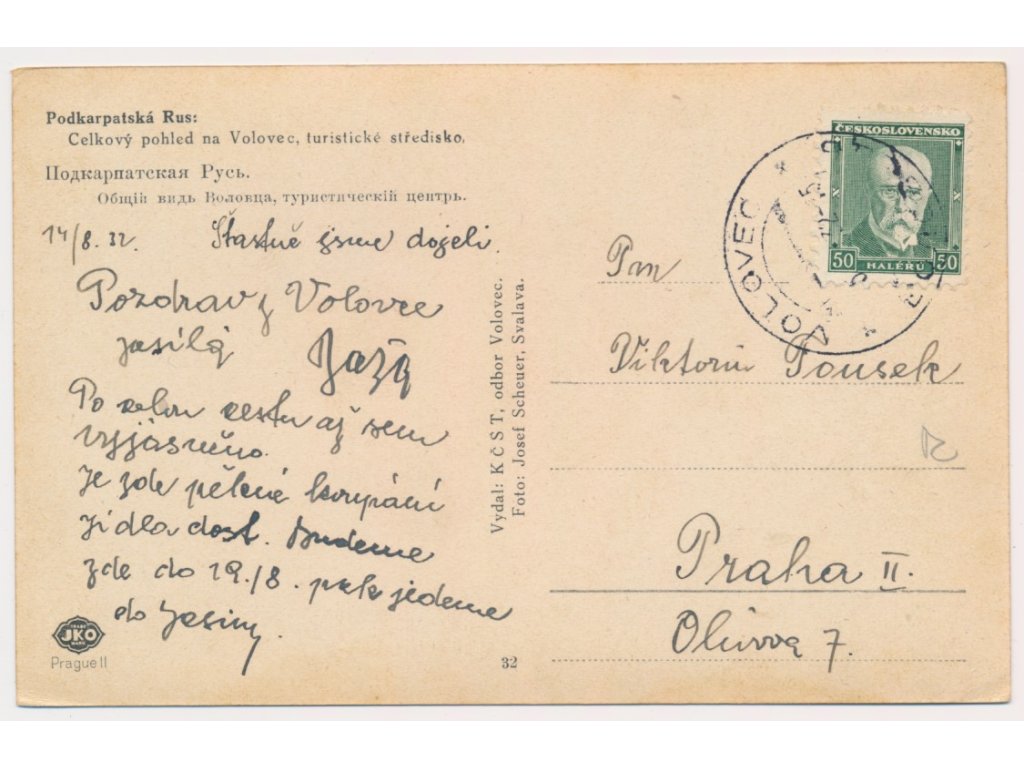 Podkarpatská Rus:
Celkový pohled na Volovec, turistické středisko.
Подкарпатская Русь.
Общій видъ Воловца, туристическій центръ.
14/8. 32. Šťastně jsme dojeli.
Pozdrav z Volovce
zasílá
Po celou cestu až sem
vyjasněno.
Je zde pěkné koupání
jídla dost. Budeme
zde do 19./8. pak jedeme
do Jasiny.
TRADE
JKO
MARK
Prague II
32
Vydal: KČST, odbor Volovec.
Foto: Josef Scheuer, Svalava.
ČESKOSLOVENSKO
50 HALÉRŮ 50
VOLOVEC
Pan
Viktorin Pousek
Praha II.
Olivova 7.